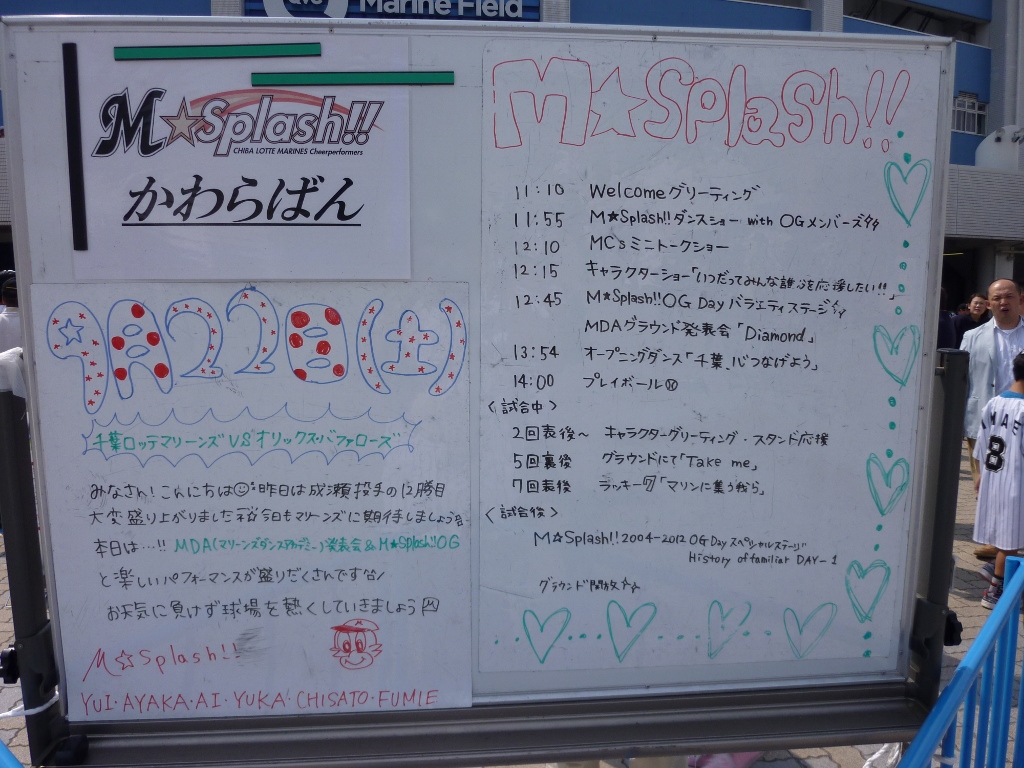 Marine Field
M☆Splash!!
CHIBA LOTTE MARINES Cheerperformers
かわらばん
9月22日(土)
千葉ロッテマリーンズ VS オリックス・バファローズ
みなさん!こんにちは 昨日は成瀬投手の12勝目
大変盛り上がりました 今日もマリーンズに期待しましょう
本日は…!! MDA(マリーンズダンスアカデミー)発表会 & M★Splash!!OG
と楽しいパフォーマンスが盛りだくさんです
お天気に負けず球場を熱くしていきましょう
M☆Splash!!
YUI・AYAKA・AI・YUKA・CHISATO・FUMIE
M☆Splash!!
11:10 Welcomeグリーティング
11:55 M★Splash!!ダンスショー with OGメンバーズ
12:10 MCsミニトークショー
12:15 キャラクターショー「いつだってみんな誰かを応援したい!!」
12:45 M★Splash!!OG Day バラエティステージ
MDAグラウンド発表会「Diamond」
13:54 オープニングダンス「千葉、心つなげよう」
14:00 プレイボール
<試合中>
2回表後〜 キャラクターグリーティング・スタンド応援
5回裏後 グラウンドにて「Take me」
7回表後 ラッキー7「マリンに集う我ら」
<試合後>
M☆Splash!! 2004-2012 OG Day スペシャルステージ
History of familiar DAY-1
グラウンド開放☆☆
8